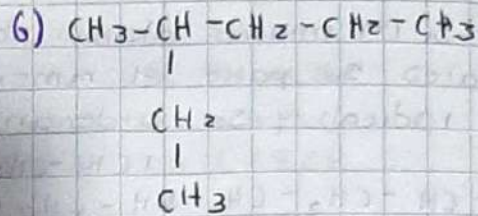 6) CH3-CH-CH2-CH2-CH3
|
CH2
|
CH3